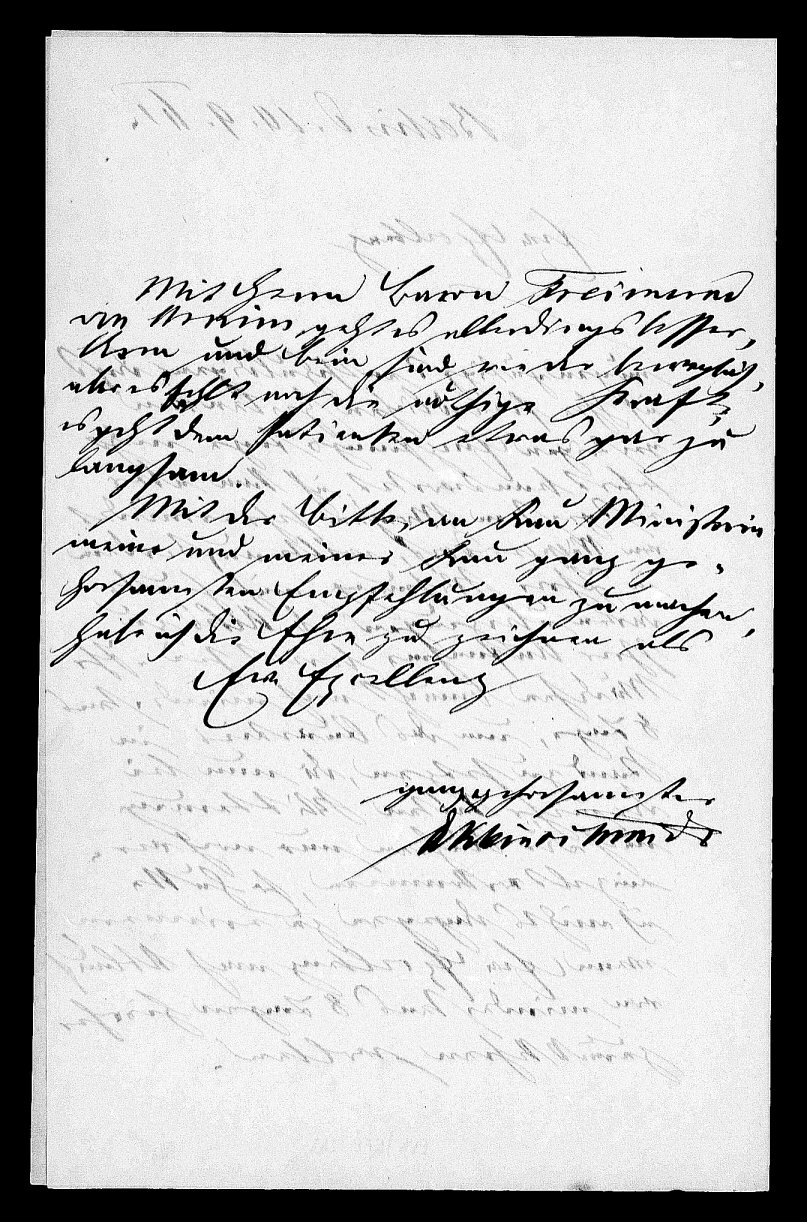 Mit Herrn Baron Freimund
von Arnim geht es allerdings besser,
Arm und Bein sind wieder beweglich,
aber es fehlt noch die nöthige Kraft,
es geht dem Patienten etwas gar zu
langsam.
Mit der Bitte, an Frau Ministerin
meine und meiner Frau ganz ge-
horsamsten Empfehlungen zu machen,
habe ich die Ehre zu zeichnen als
Ew. Excellenz
ganz gehorsamster